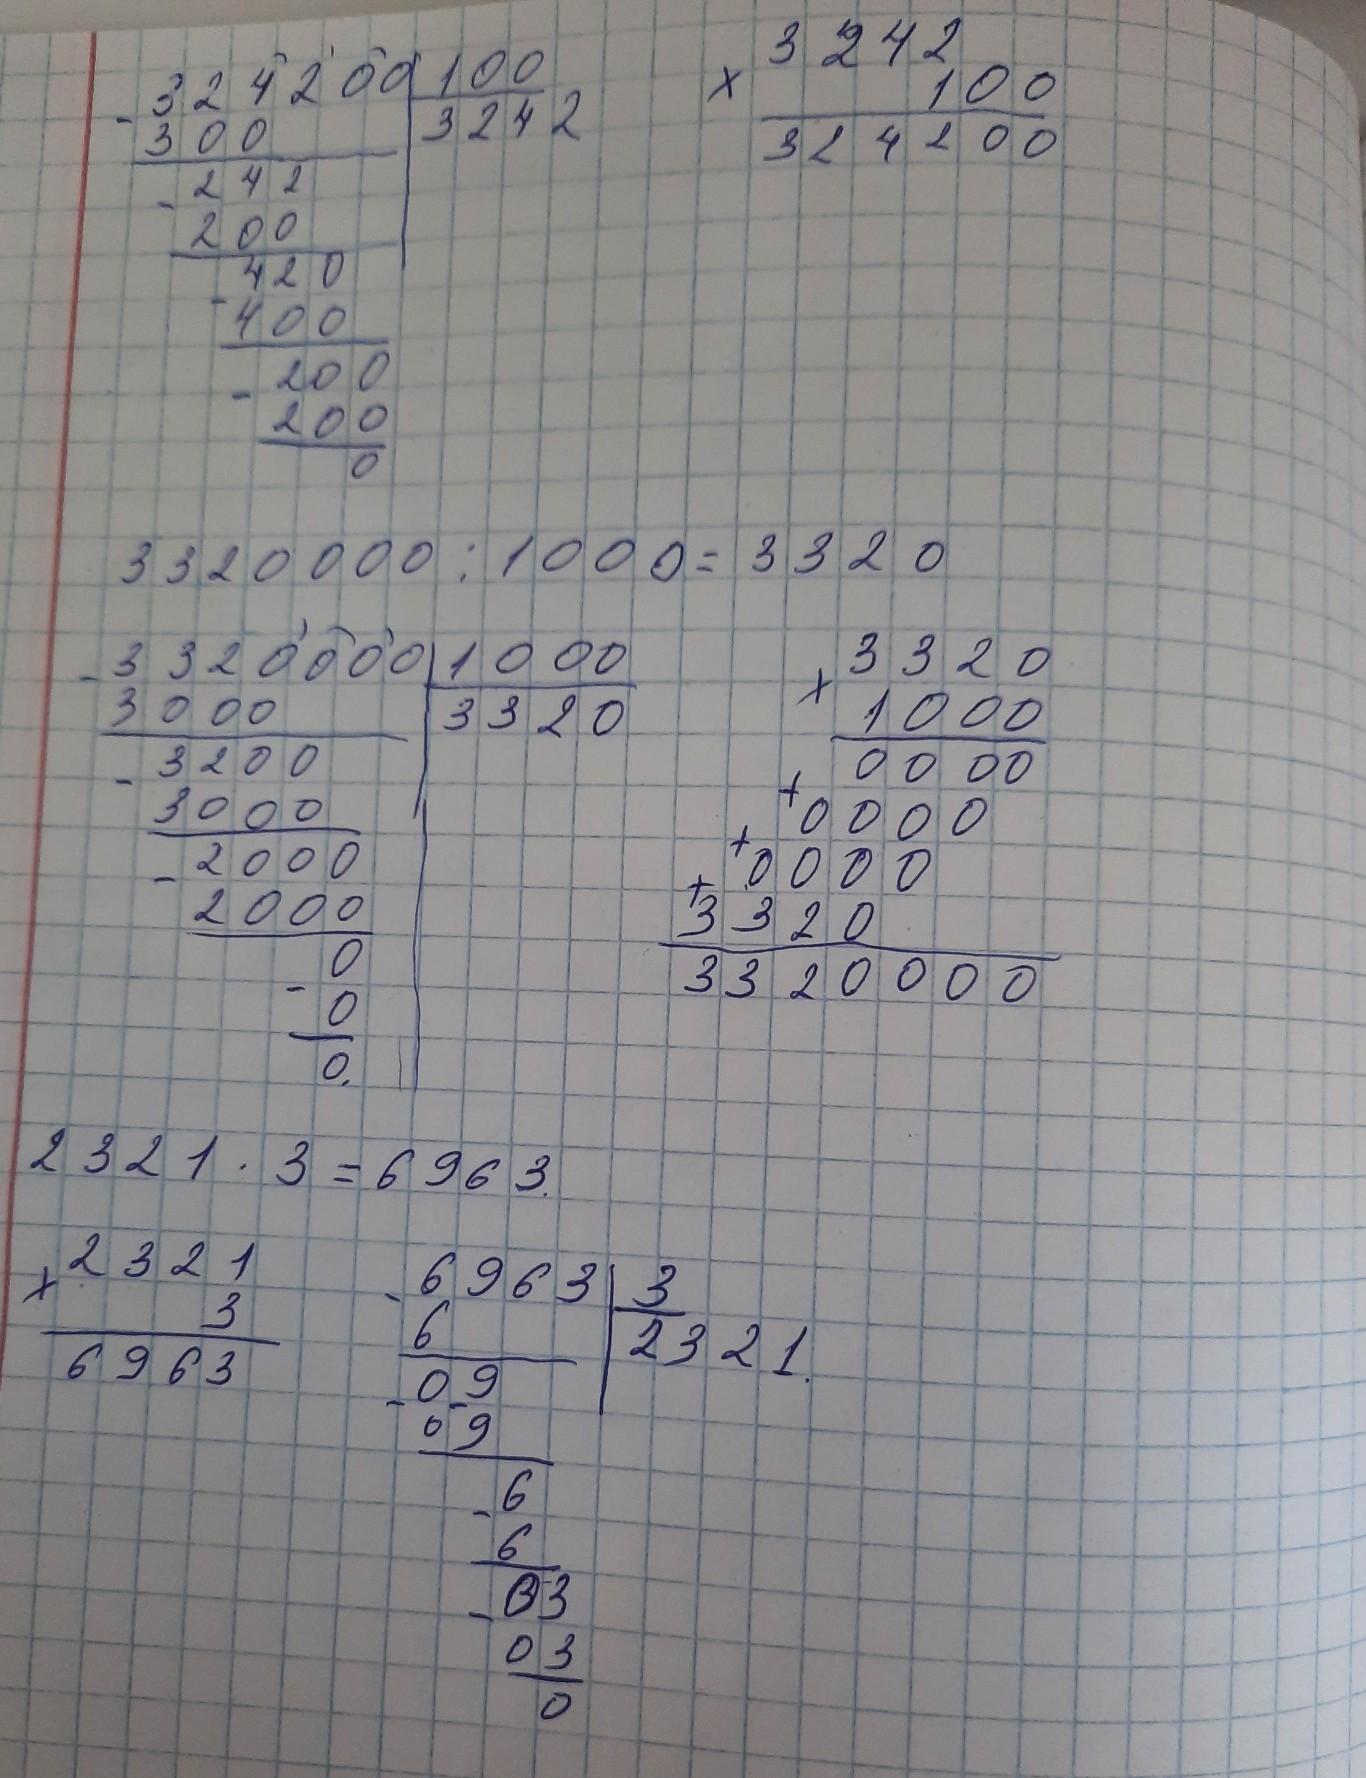 - 324200 | 100
300 | 3242
- 242
200
- 420
400
- 200
200
0
x 3242
100
324200
3320000 : 1000 = 3320
- 3320000 | 1000
3000 | 3320
- 3200
3000
- 2000
2000
0
- 0
0.
x 3320
1000
0000
+ 0000
+ 0000
+ 3320
3320000
2321 · 3 = 6963.
x 2321
3
6963
- 6963 | 3
6 | 2321.
- 09
- 09
- 6
6
- 03
03
0